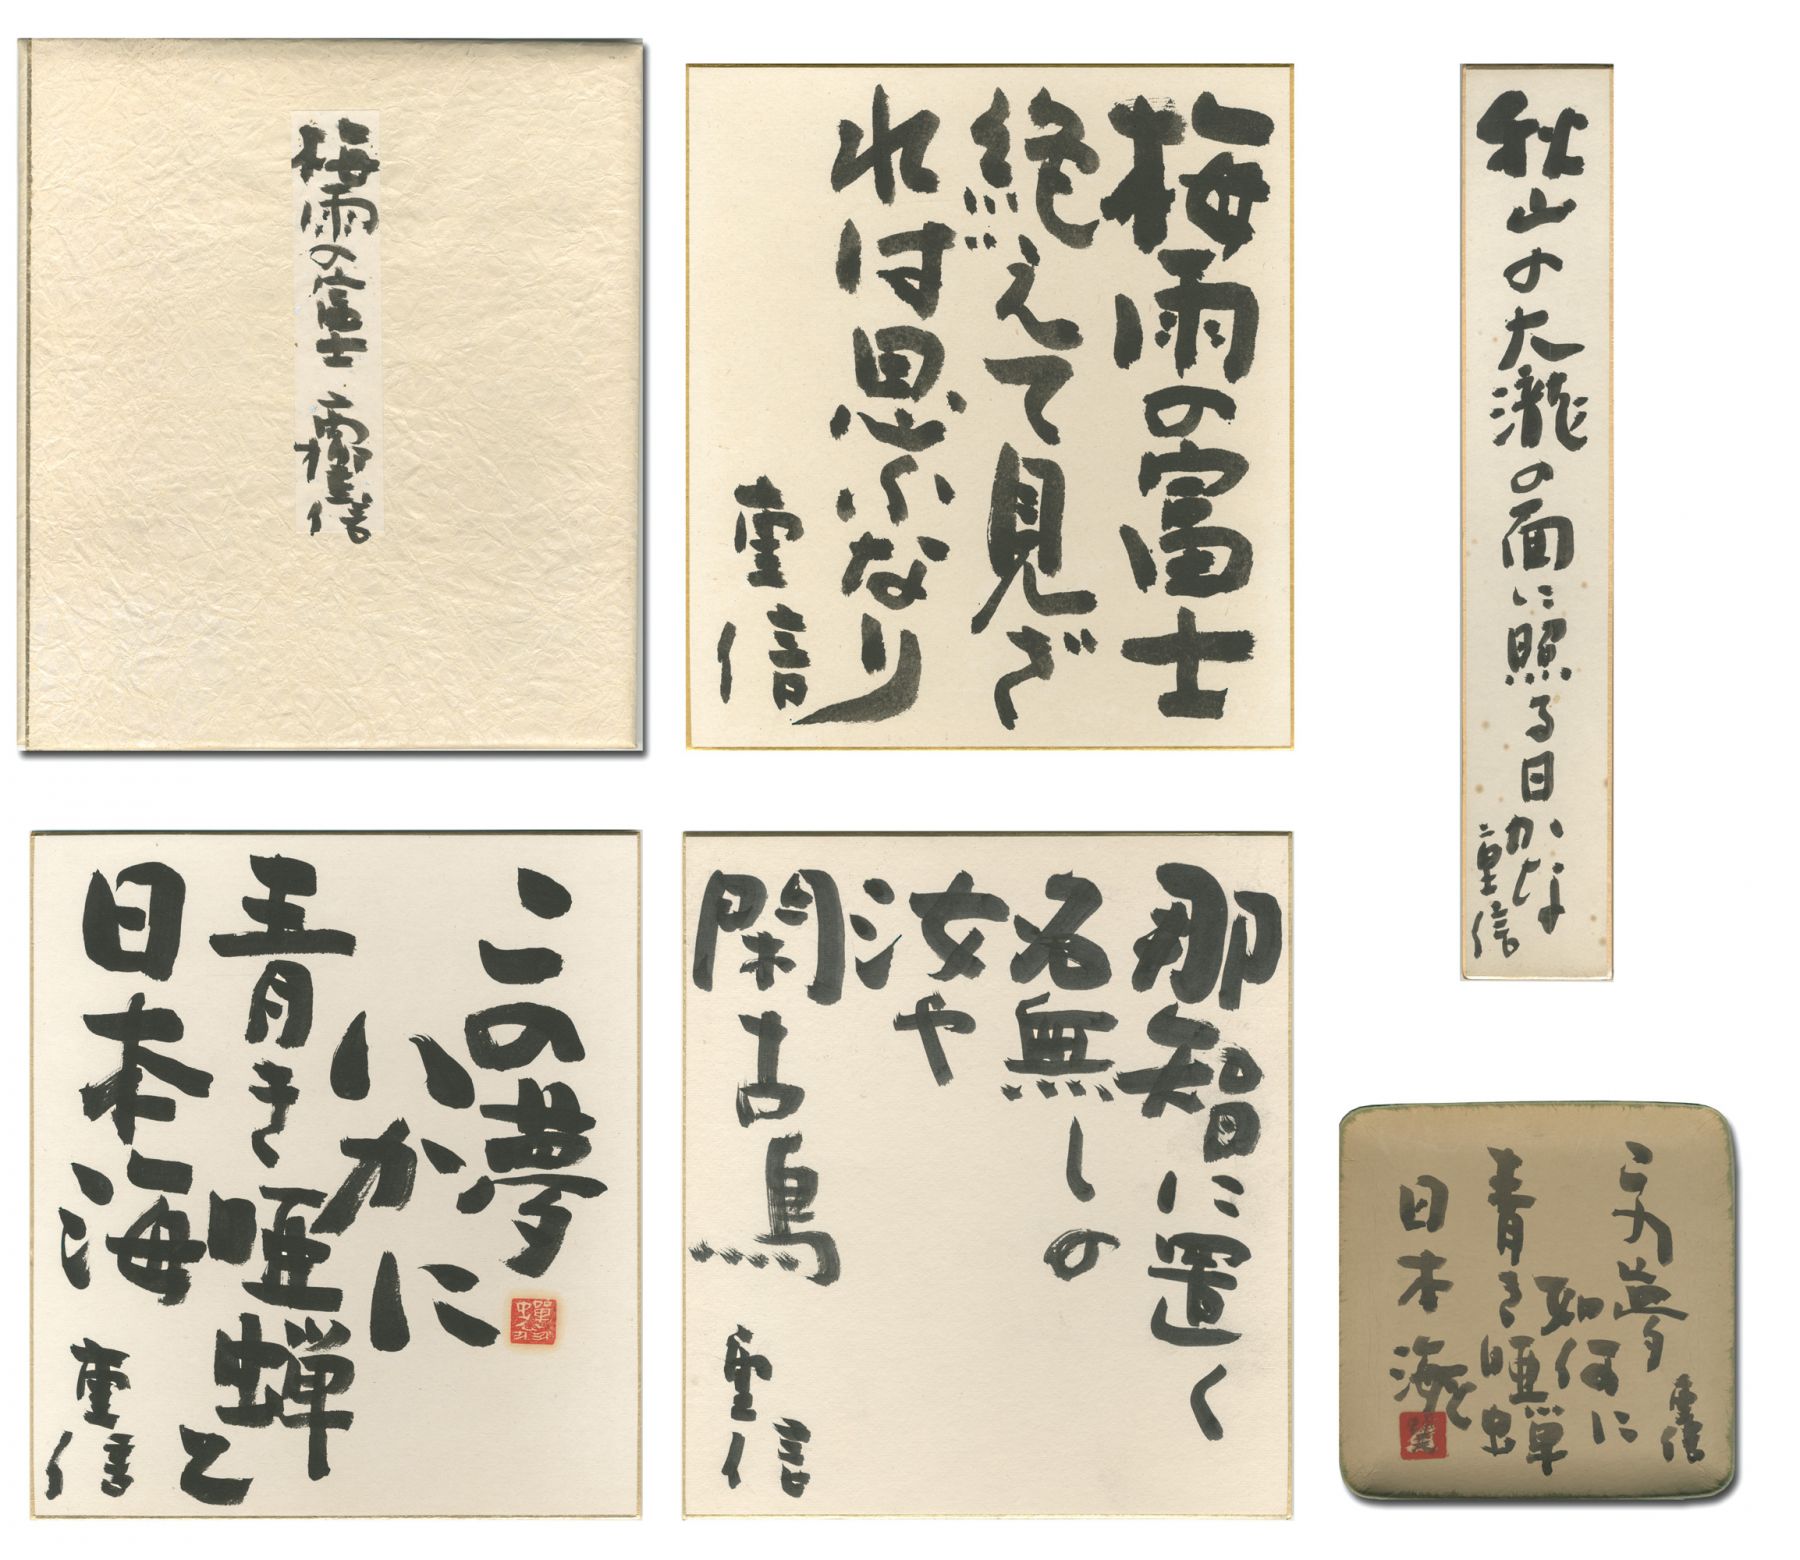 梅雨の富士 高柳重信
梅雨の富士
絶えて見ざ
れは思ふなり
重信
秋山の大瀧の面に照る日かな
重信
この夢
いかに
青き唖蝉と
日本海
重信
那智に置く
名無しの
汝や
閑古鳥
重信
重信
この夢
如何に
青き唖蝉
日本海